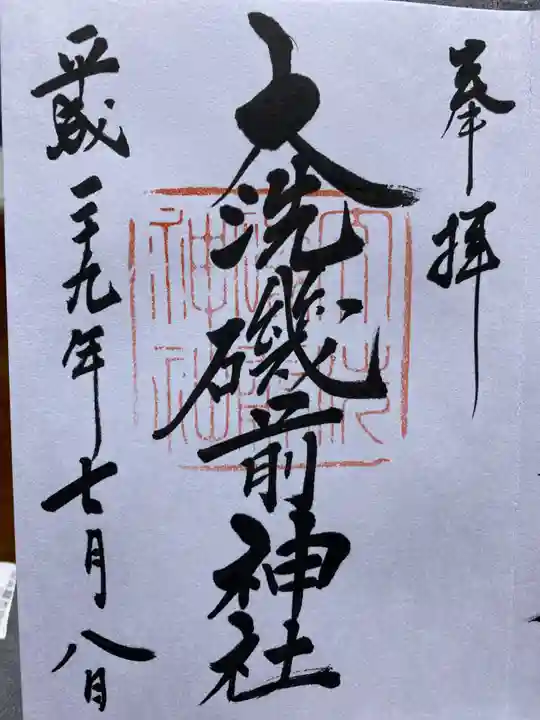 奉拝
大洗磯前神社
平成二十九年七月八日